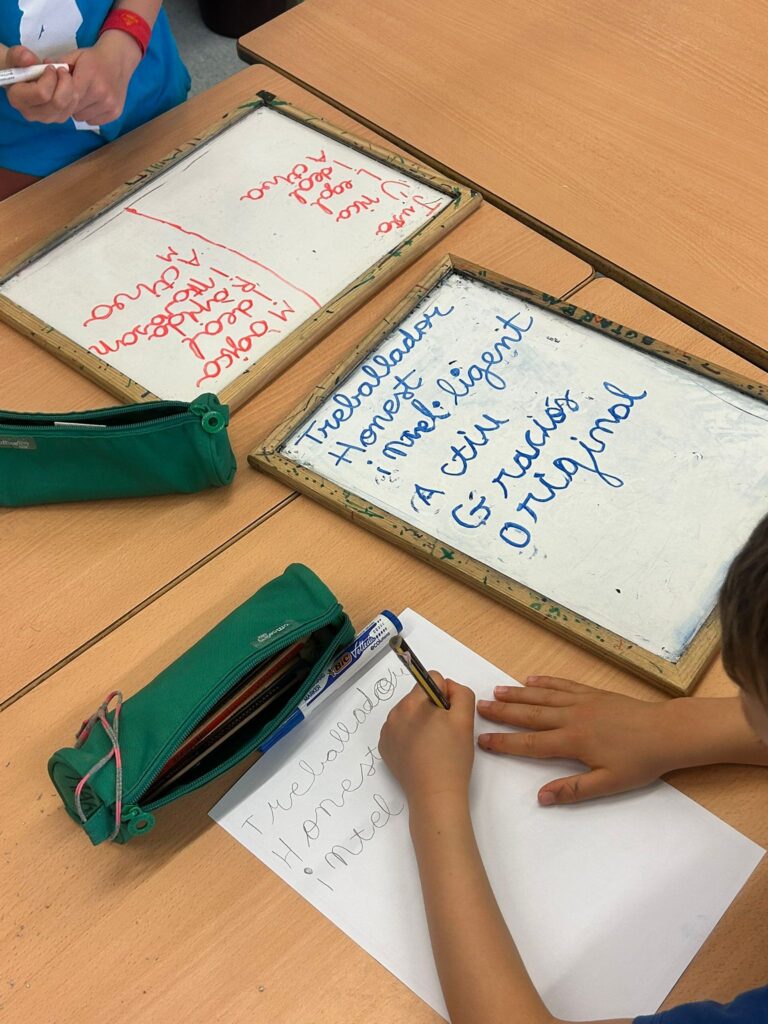 Justa
Única
Legal
Ideal
Activa
Màgica
Ideal
Activa
M
Treballador
Honest
intel·ligent
Actiu
Graciós
Original
BIC Velleda
MARKER
Treballador
Honest
intel